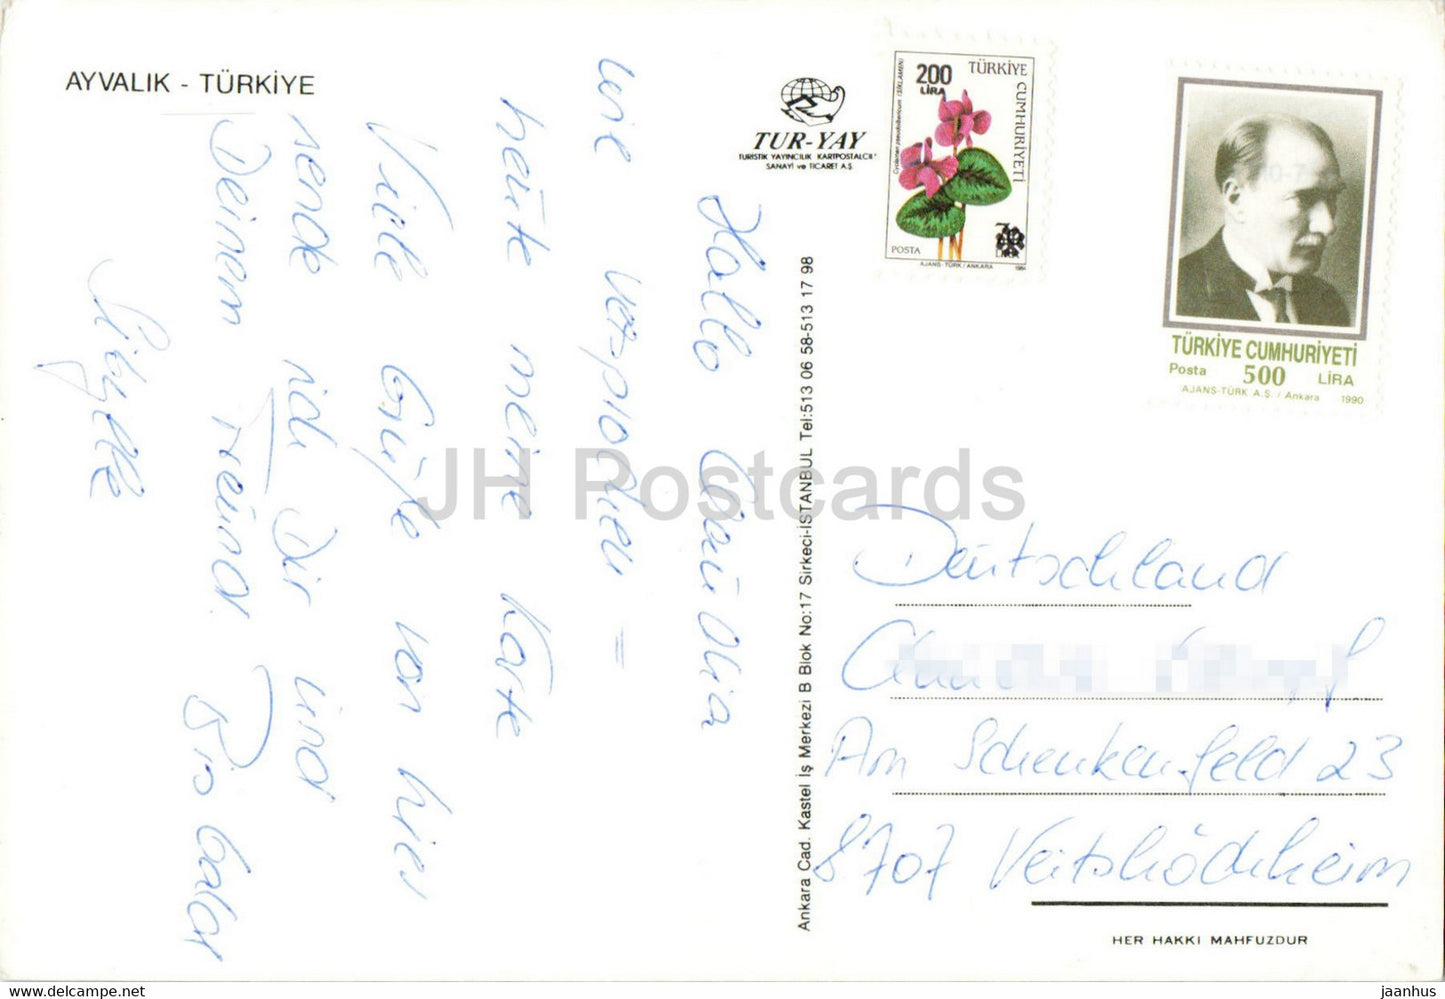 AYVALIK - TÜRKİYE
TUR-YAY
TURISTIK YAYINCILIK KARTPOSTALCII
SANAYİ ve TİCARET A.Ş.
Hallo
wie versprochen =
heute meine Karte
Viele Grüße von hier
sende ich Dir und
Deinem Freund
Sibylle
Ankara Cad. Kastel İş Merkezi B Blok No:17 Sirkeci-İSTANBUL Tel:513 06 58-513 17 98
200
LİRA
TÜRKİYE CUMHURİYETİ
Cyclamen pseudoibericum (SİKLAMEN)
POSTA
AJANS-TÜRK / ANKARA 1984
TÜRKİYE CUMHURİYETİ
Posta 500 LİRA
AJANS-TÜRK A.Ş. / Ankara 1990
Deutschland
Am Schenkenfeld 23
8707 Veitshöchheim
HER HAKKI MAHFUZDUR
JH Postcards
HipPostcard.com - the new marketplace for collectors
jaanhus